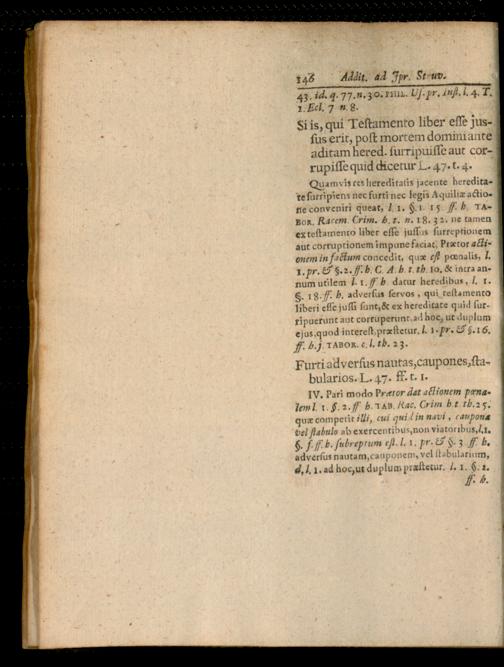 146 Addit. ad Jpr. Struv.
43. id. q. 77. n. 30. Uſ. pr. Inſt. l. 4. T.
1. Ecl. 7 n. 8.
Si is, qui Teſtamento liber eſſe juſ-
ſus erit, poſt mortem domini ante
aditam hered. ſurripuiſſe aut cor-
rupiſſe quid dicetur L. 47. t. 4.
Quamvis res hereditatis jacente heredita-
te ſurripiens nec furti nec legis Aquiliæ actio-
ne conveniri queat, l. 1. §. 1. 15. ff. h. TA-
BOR. Racem. Crim. h. t. n. 18. 32. ne tamen
ex teſtamento liber eſſe juſſus ſurreptionem
aut corruptionem impune faciat, Prætor acti-
onem in factum concedit, quæ eſt pœnalis, l.
1. pr. & §. 2. ff. h. C. A. h. t. th. 10. & intra an-
num utilem l. 1. ff h. datur heredibus, l. 1.
§. 18. ff. h. adverſus ſervos, qui teſtamento
liberi eſſe juſſi ſunt, & ex hereditate quid ſur-
ripuerunt aut corruperunt, ad hoc, ut duplum
ejus, quod intereſt, præſtetur. l. 1. pr. & §. 16.
ff. h. j. TABOR. c. l. th. 23.
Furti adverſus nautas, caupones, ſta-
bularios. L. 47. ff. t. 1.
IV. Pari modo Prætor dat actionem pœna-
lem l. 1. §. 2. ff h. TAB. Rac. Crim h. t. th. 25.
quæ competit illi, cui quid in navi, caupona
vel ſtabulo ab exercentibus, non viatoribus, l. 1.
§. ſ. ff. h. ſubreptum eſt. l. 1. pr. & §. 3 ff. h.
adverſus nautam, cauponem, vel ſtabularium,
d. l. 1. ad hoc, ut duplum præſtetur. l. 1. §. 2.
ff. h.